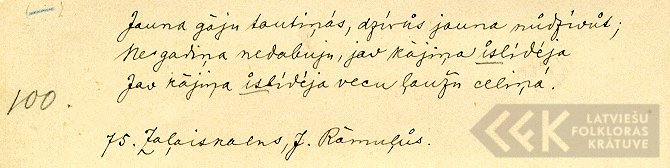 Jauna gāju tautiņās, dzīvūs jauna nūdzīvūt;
Ne gadiņa nedabuju, jav kājiņa īslīdēja
Jav kājiņa īslīdēja vecu ļaužu celiņā.
100.
75. Zaļaiskalns, J. Rāmuļūs.
LATVIEŠU
FOLKLORAS
KRĀTUVE